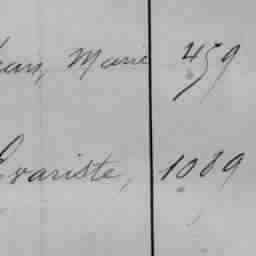 Jean, Marie 459
Evariste, 1089